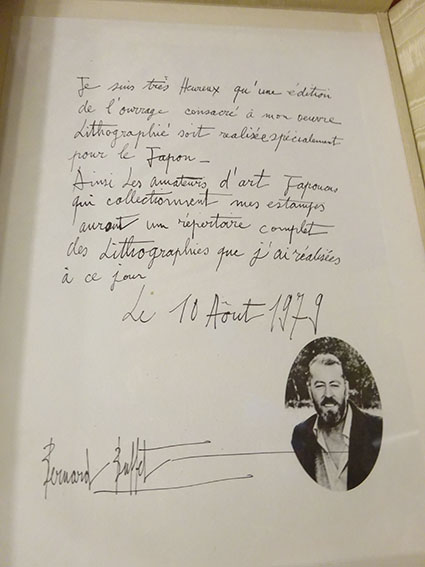 Je suis très Heureux qu'une édition
de l'ouvrage consacré à mon oeuvre
Lithographié soit realisée spécialement
pour le Japon_
Ainsi Les amateurs d'art Japonais
qui collectionnent mes estampes
auront un répertoire complet
des Lithographies que j'ai réalisées
à ce jour
Le 10 Aôut 1979
Bernard Buffet